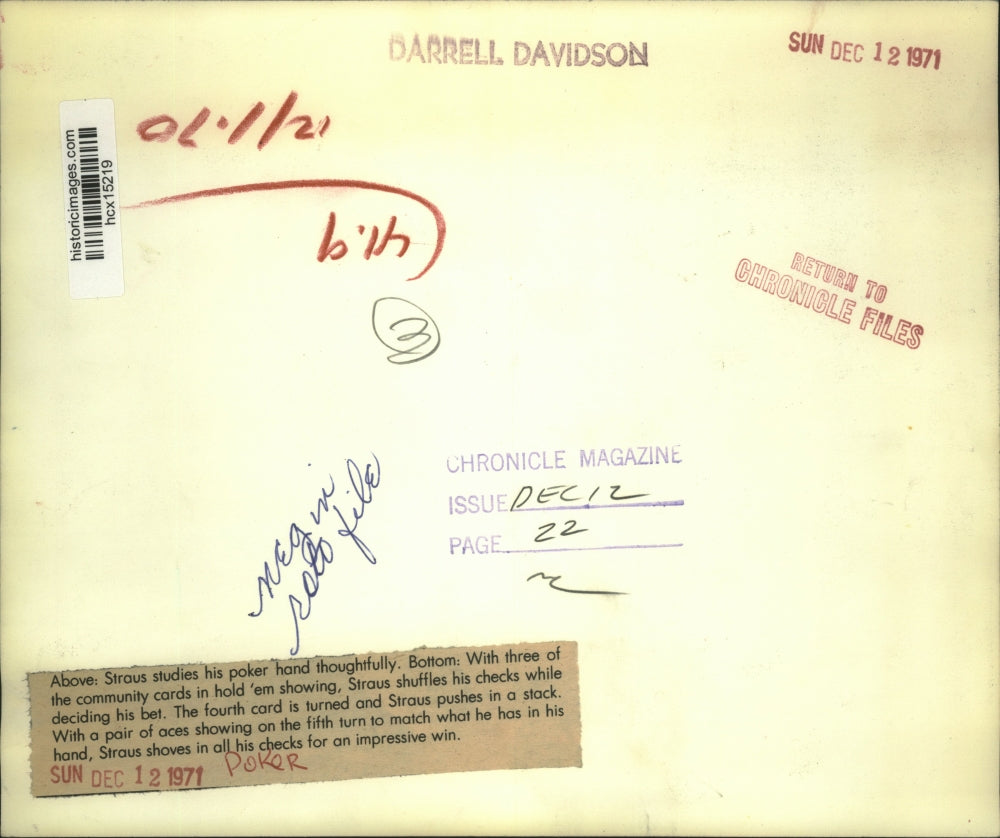 DARRELL DAVIDSON
SUN DEC 12 1971
historicimages.com
hcx15219
RETURN TO
CHRONICLE FILES
3
CHRONICLE MAGAZINE
ISSUE DEC 12
PAGE 22
neg in
roto file
Above: Straus studies his poker hand thoughtfully. Bottom: With three of
the community cards in hold 'em showing, Straus shuffles his checks while
deciding his bet. The fourth card is turned and Straus pushes in a stack.
With a pair of aces showing on the fifth turn to match what he has in his
hand, Straus shoves in all his checks for an impressive win.
SUN DEC 12 1971 POKER